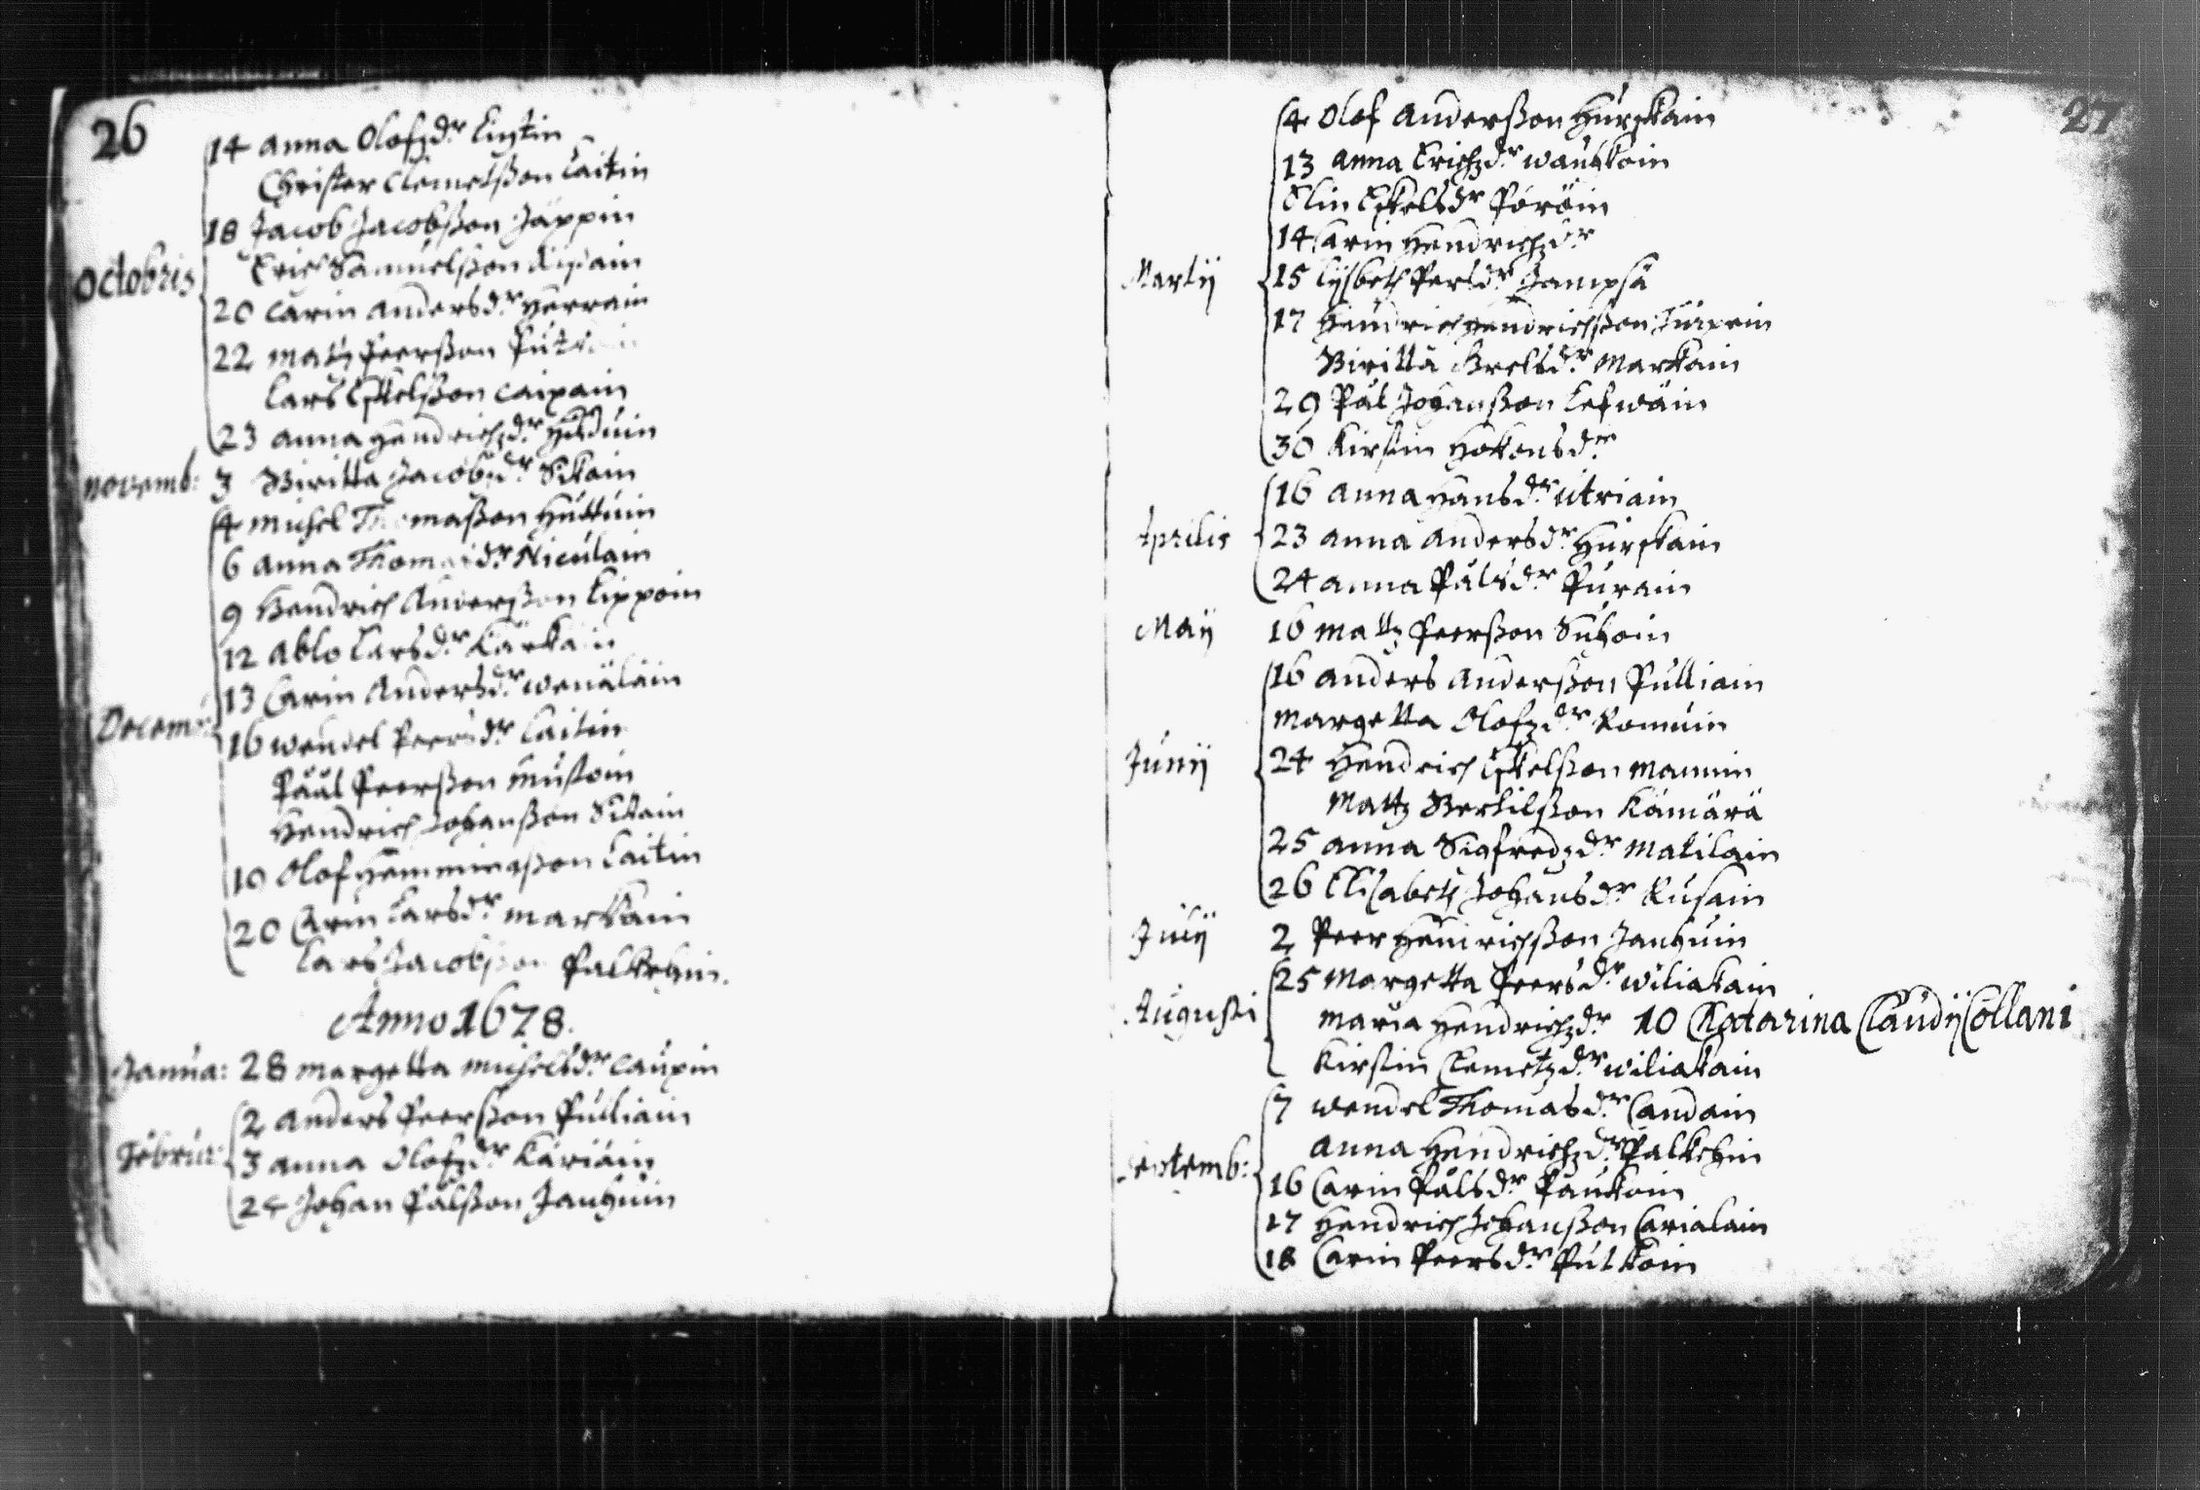 26
14 Anna Olofzdr
Christer Clemetßon Laitin
18 Jacob Jacobßon Jäppin
Octobris
Erich Samuelßon
20 Carin Andersdr Herrain
22 Matz Peerßon
Lars Eskelßon Caipain
23 Anna Hendrichzdr
Novemb: 3 Biritta Jacobzdr Sikain
4 Michel Thomaßon Huttuin
6 Anna Thomasdr Niculain
9 Hendrich Anderßon Lippoin
12 Ablo Larsdr Kärkäin
13 Carin Andersdr Wenäläin
Decemb:
16 Wendel Peersdr Laitin
Påål Peerßon Mustoin
Hendrich Johanßon Sikain
19 Olof Hemmingßon Laitin
20 Carin Larsdr Markain
Lars Jacobßon Palkehin.
Anno 1678.
Janua: 28 Margetta Michelsdr Laupin
2 Anders Peerßon Pulliain
Februa: 3 Anna Olofzdr Käriäin
24 Johan Pålßon Janhuin
27
4 Olof Anderßon Hurskain
13 Anna Erichzdr Wauhkoin
Elin Eskelsdr Poröin
14 Carin Hendrichzdr
Martij 15 Lijsbeth Persdr Jampsä
17 Hendrich Hendrichßon
Biritta Grelsdr Markain
29 Pål Johanßon Lefwäin
30 Kirstin Hokonsdr
16 Anna Hansdr Utriain
Aprilis 23 Anna Andersdr Hurskain
24 Anna Pålsdr Purain
Maij 16 Mattz Peerßon Suhoin
16 Anders Anderßon Pulliain
Margetta Olofzdr Romuin
Junij 24 Hendrich Eskelßon Mannin
Mattz Bertilßon Kämärä
25 Anna Sigfredzdr Matilain
26 Elisabeth Johansdr Rusain
Julij 2 Peer Hendrichßon Janhuin
25 Margetta Peersdr Wiliakain
Augusti Maria Hendrichzdr 10 Katarina Claudij Collani
Kirstin Clemetzdr Wiliakain
7 Wendel Thomasdr Candain
Anna Hendrichzdr Palkehin
Septemb: 16 Carin Pålsdr Paukoin
17 Hendrich Johanßon Carialain
18 Carin Peersdr Pulkoin